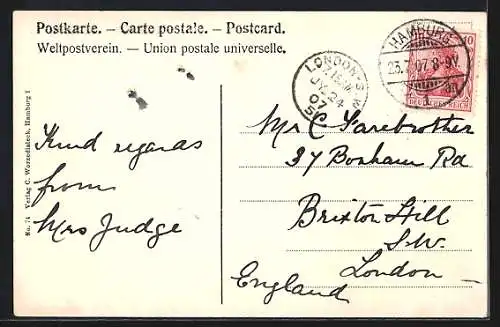 Postkarte. – Carte postale. – Postcard.
Weltpostverein. – Union postale universelle.
HAMBURG
23.7.07 8-9V.
1
10
DEUTSCHES REICH
LONDON. S.W.
7.15 PM
JY 24
07
No. 74 Verlag C. Worzedialeck, Hamburg I
Kind regards
from
Mrs Judge
Mr C Farebrother
37 Bonham Rd
Brixton Hill
S.W.
London –
England